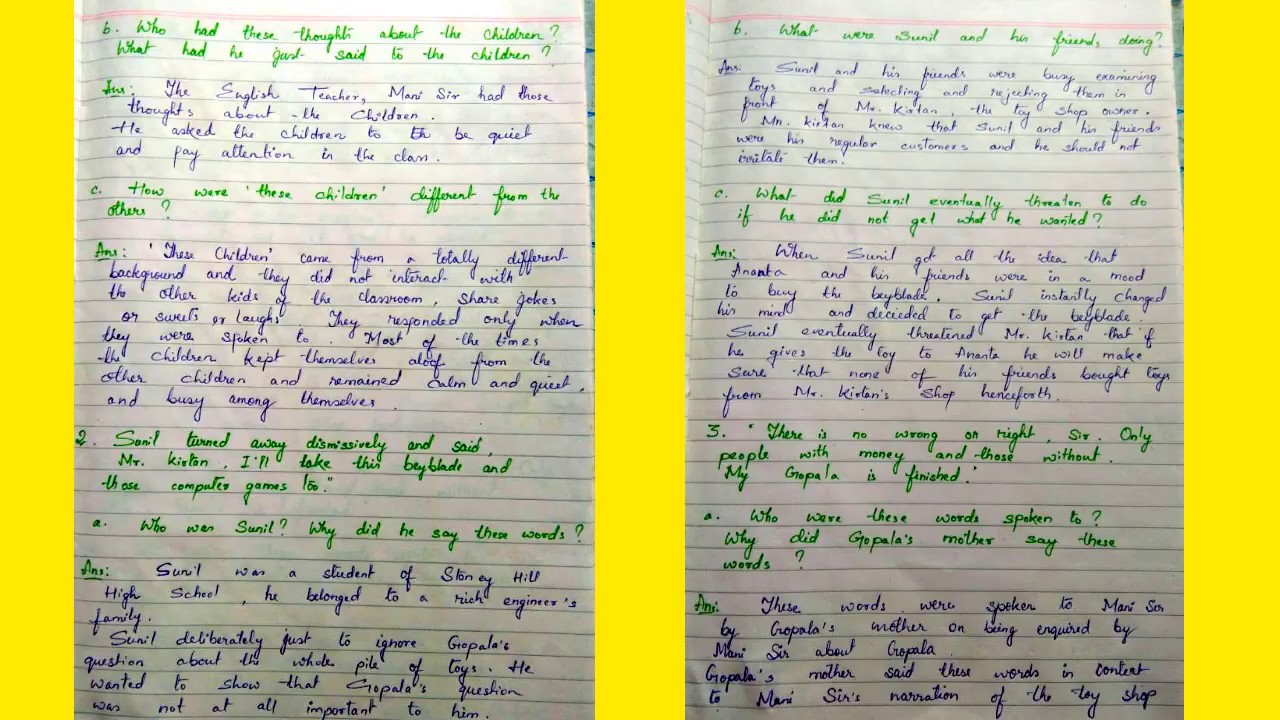 b. Who had these thoughts about the children?
What had he just said to the children?
Ans: The English Teacher, Mani Sir had those
thoughts about the children.
He asked the children to be quiet
and pay attention in the class.
c. How were 'these children' different from the
others?
Ans: 'These Children' came from a totally different
background and they did not interact with
the other kids of the classroom, share jokes
or sweets or laughs. They responded only when
they were spoken to. Most of the times
the children kept themselves aloof from the
other children and remained calm and quiet,
and busy among themselves.
2. Sunil turned away dismissively and said,
Mr. Kirtan, I'll take this beyblade and
those computer games too."
a. Who was Sunil? Why did he say these words?
Ans: Sunil was a student of Stoney Hill
High School, he belonged to a rich engineer's
family.
Sunil deliberately just to ignore Gopala's
question about the whole pile of toys. He
wanted to show that Gopala's question
was not at all important to him.
b. What were Sunil and his friends doing?
Ans: Sunil and his friends were busy examining
toys and selecting and rejecting them in
front of Mr. Kirtan, the toy shop owner.
Mr. Kirtan knew that Sunil and his friends
were his regular customers and he should not
irritate them.
c. What did Sunil eventually threaten to do
if he did not get what he wanted?
Ans: When Sunil got all the idea that
Ananta and his friends were in a mood
to buy the beyblade. Sunil instantly changed
his mind and decieded to get the beyblade.
Sunil eventually threatened Mr. Kirtan that if
he gives the toy to Ananta he will make
sure that none of his friends bought toys
from Mr. Kirtan's Shop henceforth.
3. 'There is no wrong or right, Sir. Only
people with money and those without.
My Gopala is finished.'
a. Who were these words spoken to?
Why did Gopala's mother say these
words?
Ans: These words were spoken to Mani Sir
by Gopala's mother on being enquired by
Mani Sir about Gopala.
Gopala's mother said these words in context
to Mani Sir's narration of the toy shop